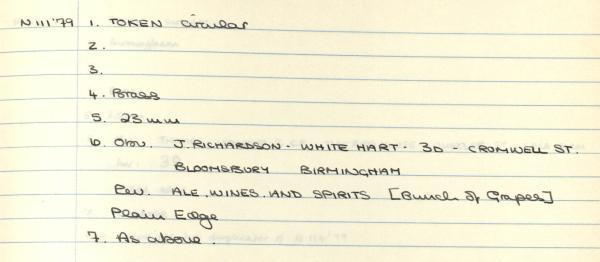 N 111'79 1. TOKEN circular
2.
3.
4. Brass
5. 23 mm
6. Obv. J. RICHARDSON - WHITE HART - 3D - CROMWELL ST.
BLOOMSBURY BIRMINGHAM
Rev. ALE. WINES. AND SPIRITS [Bunch of Grapes]
Plain Edge
7. As above.